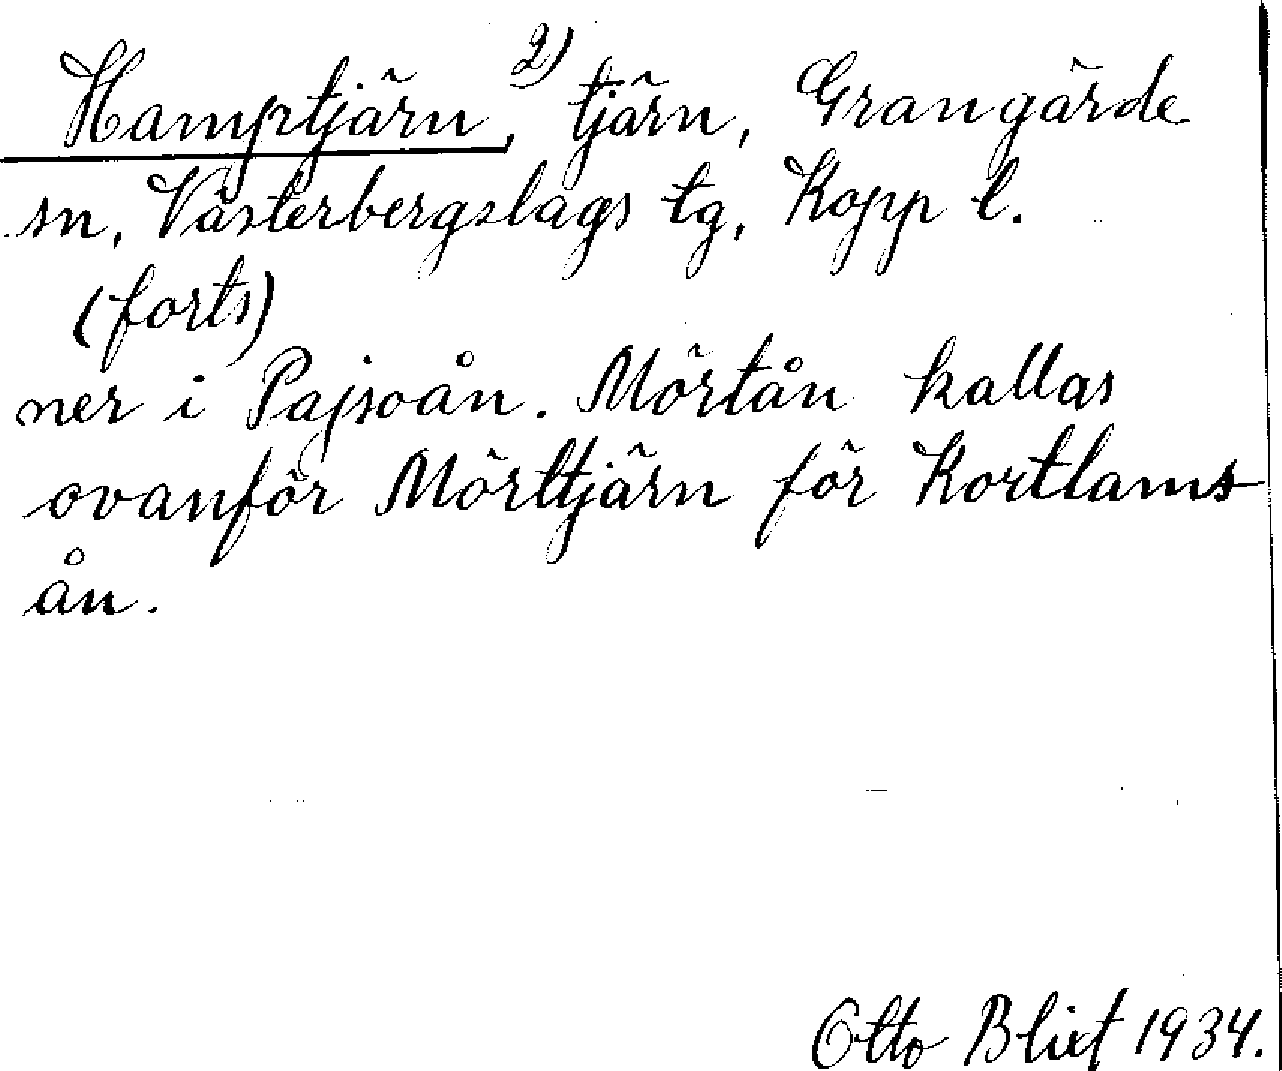 Hamptjärn, 2) tjärn, Grangärde
sn, Västerbergslags tg, Kopp l.
(forts)
ner i Pajsoån. Mörtån kallas
ovanför Mörttjärn för Kortlams
ån.
Otto Blixt 1934.